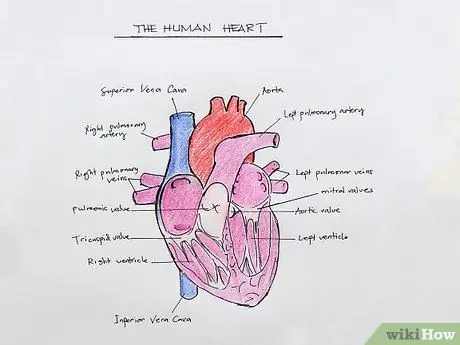 THE HUMAN HEART
Superior Vena Cava
Aorta
Left pulmonary artery
Right pulmonary
artery
Right pulmonary
veins
Left pulmonary veins
mitral valves
pulmonic valve
Aortic valve
Tricuspid valve
Left ventricle
Right ventricle
Inferior Vena Cava
wikiHow